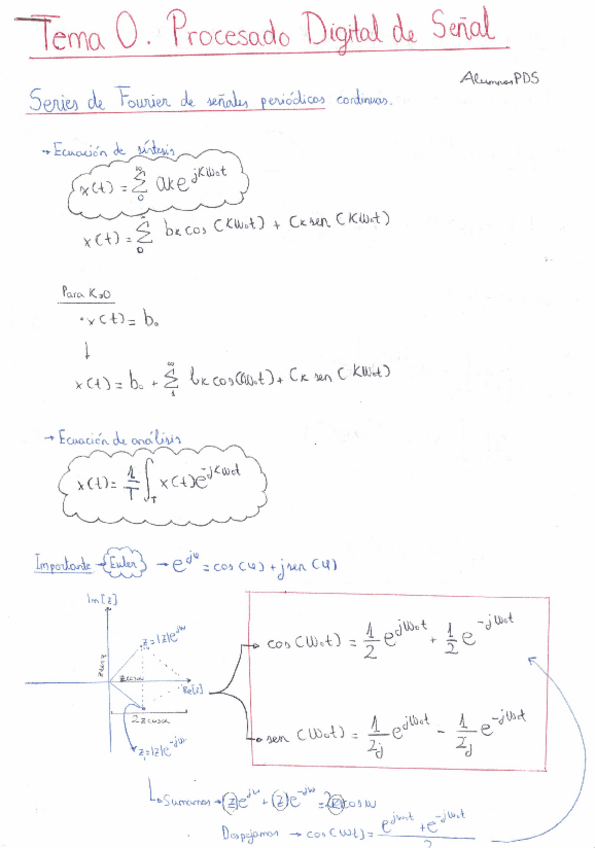 Tema 0. Procesado Digital de Señal
AlumnosPDS
Series de Fourier de señales periódicas continuas.
→ Ecuación de síntesis
x(t) = ∑_0^∞ a_K e^{jKω₀t}
x(t) = ∑_0^∞ b_K cos(Kω₀t) + C_K sen(Kω₀t)
Para K=0
· x(t) = b₀
↓
x(t) = b₀ + ∑_1^∞ b_K cos(Kω₀t) + C_K sen(Kω₀t)
→ Ecuación de análisis
x(t) = 1/T ∫_T x(t) e^{-jKω₀t}
Importante → Euler → e^{jω} = cos(ω) + j sen(ω)
Im[z]
z=|z|e^{jω}
Re[z]
2zcosω
z=|z|e^{-jω}
cos(ω₀t) = 1/2 e^{jω₀t} + 1/2 e^{-jω₀t}
sen(ω₀t) = 1/2j e^{jω₀t} - 1/2j e^{-jω₀t}
Sumamos → (z)e^{jω} + (z)e^{-jω} = 2(z)cosω
Despejamos → cos(ω₀t) = (e^{jω₀t} + e^{-jω₀t})/2